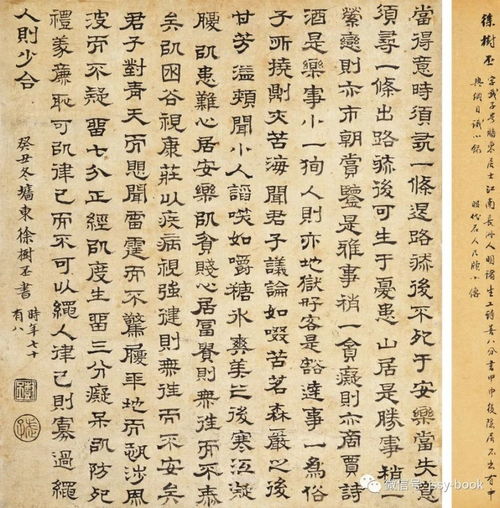 徐樹丕 字武子号墻東居士江南長洲人明諸生工詩善八分書甲申後隱居不出有中
興綱目識小錄
昭代名人尺牘小傳
當得意時須尋一條退路然後不死于安樂當失意
須尋一條出路然後可生于憂患山居是勝事稍
縈戀則亦市朝賞鑒是雅事稍一貪癡則亦商賈詩
酒是樂事小一狥人則亦地獄好客是豁達事一為俗
子所撓則亦苦海聞君子議論如啜苦茗森嚴之後
甘芳溢頰聞小人諂笑如嚼糖冰爽美之後寒沍凝
腹以患難心居安樂以貧賤心居冨貴則無往而不泰
矣以困谷視康莊以疾病視強健則無往而不安矣
君子對青天而愳聞雷霆而不驚履平地而恐涉風
波而不疑留七分正經以度生留三分癡呆以防死
禮義廉恥可以律己而不可以繩人律己則寡過繩
人則少合
癸丑冬墻東徐樹丕書
時年七十
有八
微信号: ssy-book